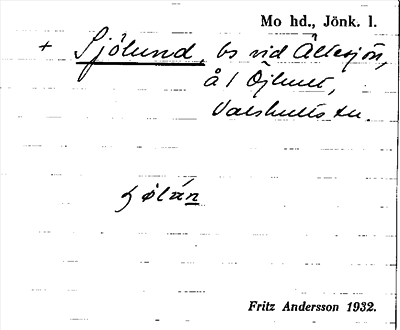 Mo hd., Jönk. l.
+ Sjölund, bs vid Ältesjön,
å 1 Öjhult,
Valshults sn.
ʃølán
Fritz Andersson 1932.